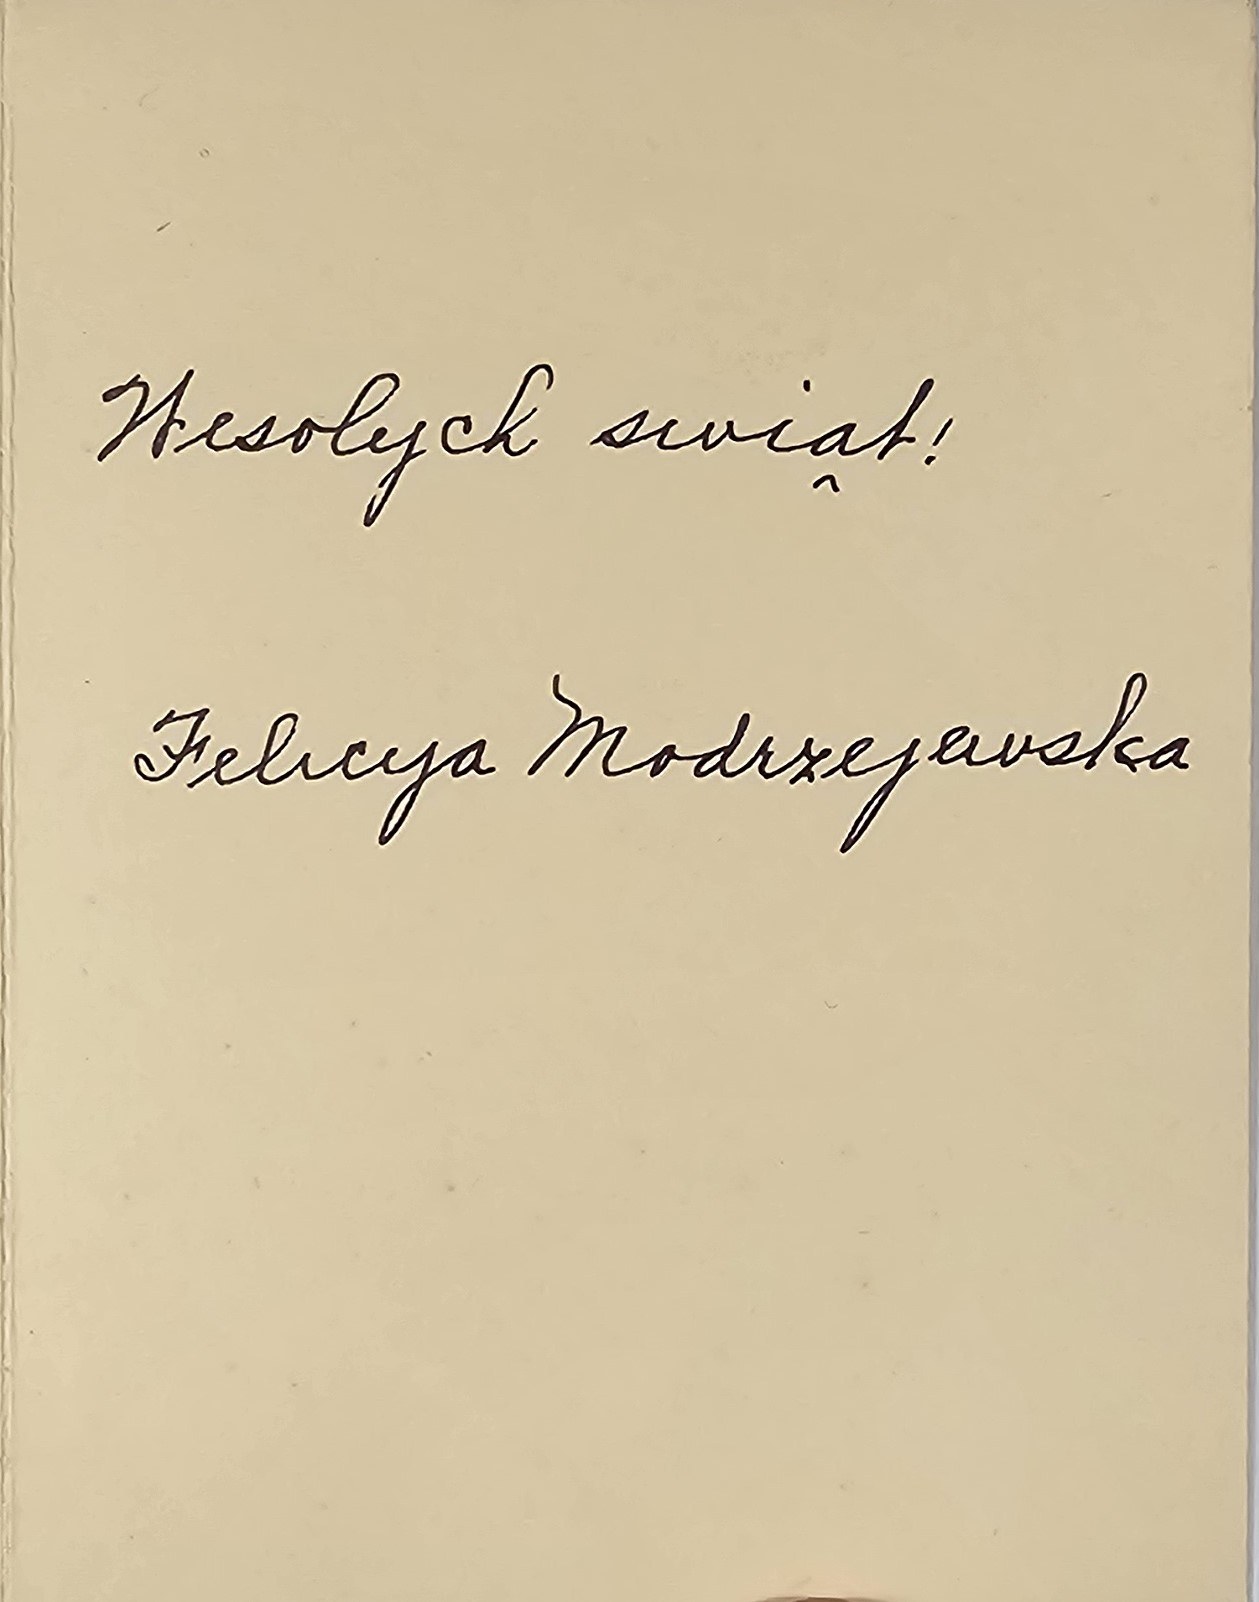 Wesolych swiąt!
Felicya Modrzejewska